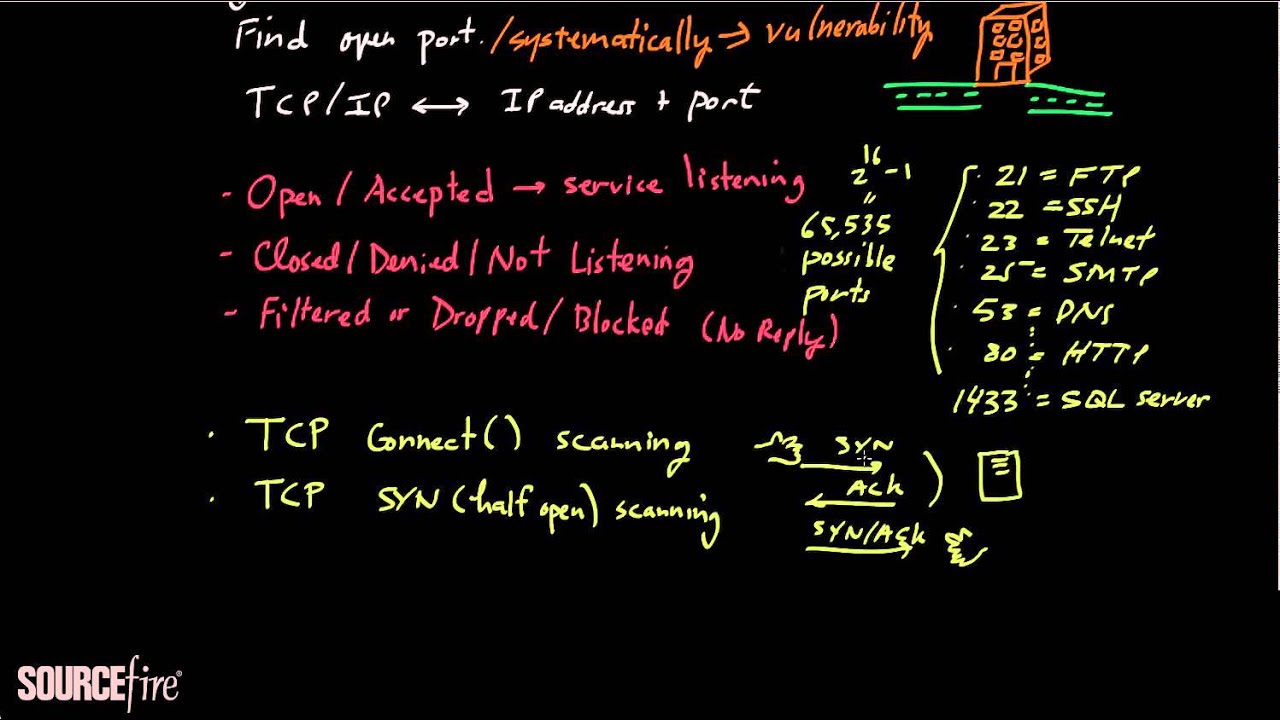 Find open port. /systematically → vulnerability
TCP/IP ↔ IP address + port
- Open / Accepted → service listening
- Closed/Denied/Not Listening
- Filtered or Dropped/Blocked (No Reply)
2^16 -1
"
65,535
possible
ports
· 21 = FTP
· 22 = SSH
· 23 = Telnet
· 25 = SMTP
53 = DNS
· 80 = HTTP
1433 = SQL server
· TCP Connect() scanning
· TCP SYN (half open) scanning
SYN
ACK
SYN/ACK
SOURCEfire®